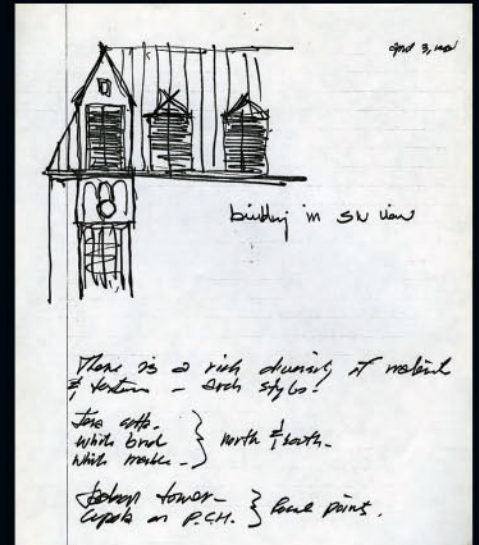 building in SW view
There is a rich diversity of material
& texture - arch styles!
Terra cotta.
white brick
white marble -
north & south -
Jackson tower -
cupola on P.C.H.
focal points.